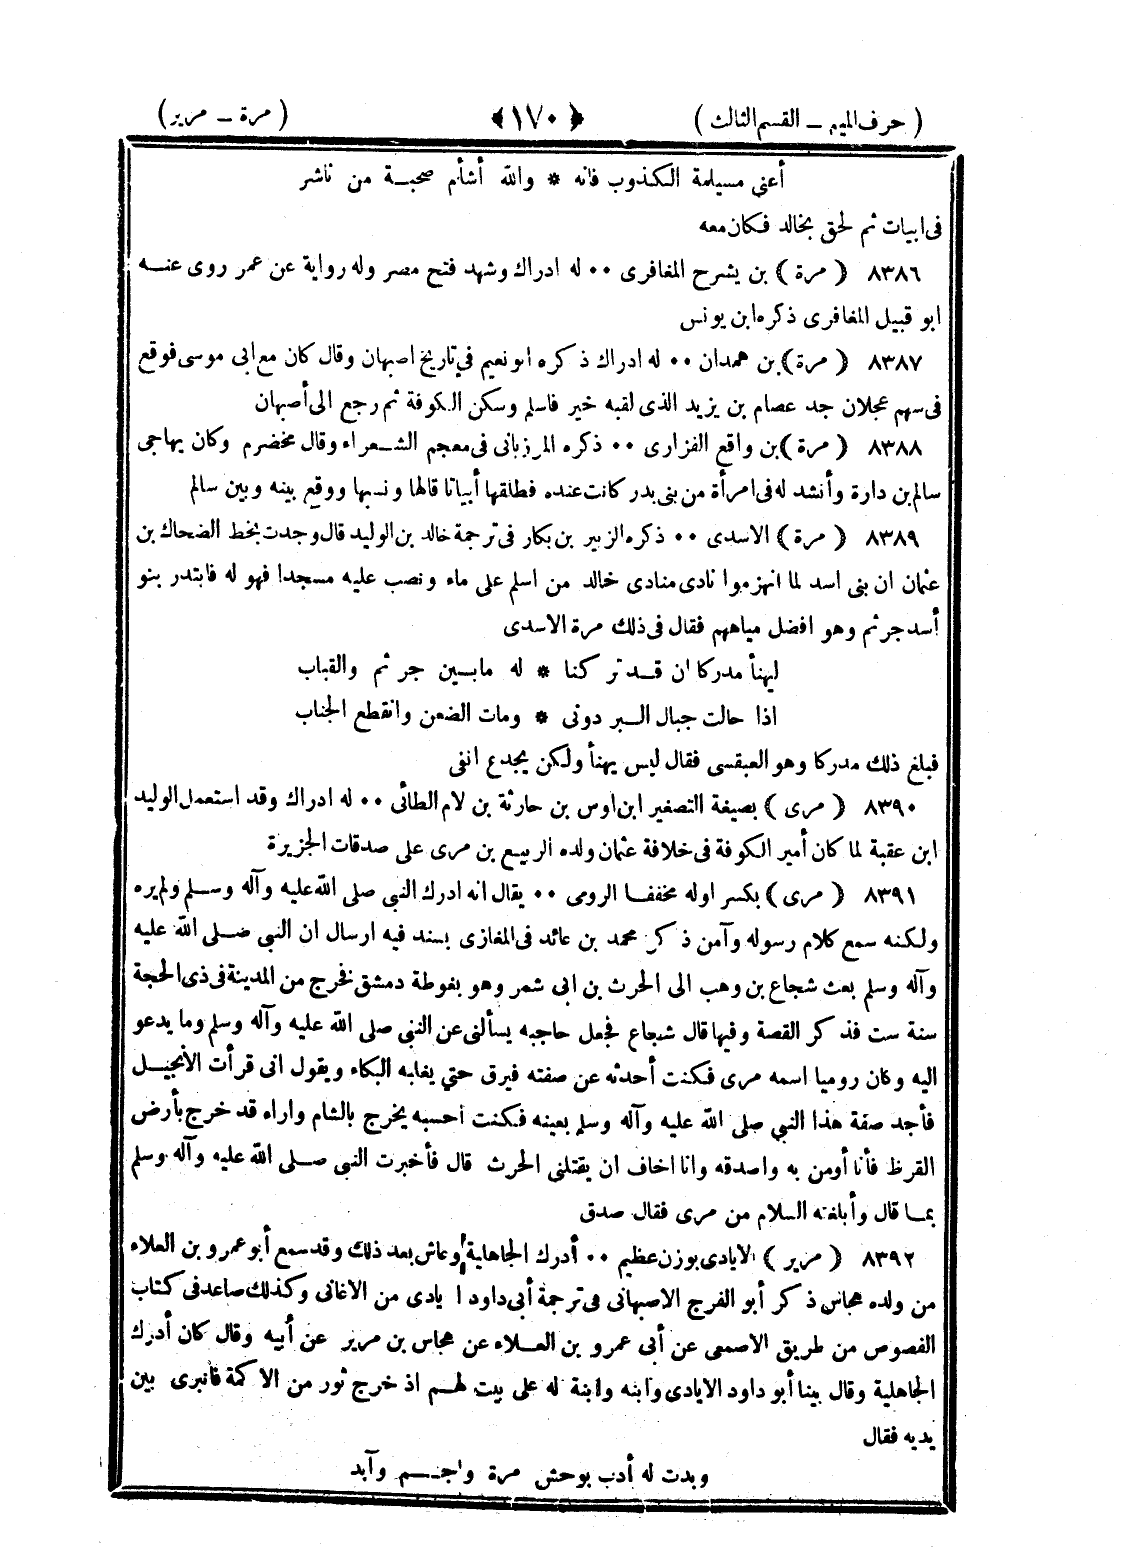 ( حرف الميم – القسم الثالث ) ﴿ ١٧٠ ﴾ ( مرة – مرير )
أعني مسيلمة الكذوب فانه * والله أشأم صحبة من ناشر
فى ابيات ثم لحق بخالد فكان معه
٨٣٨٦ ( مرة ) بن يشرح المغافرى ٠٠ له ادراك وشهد فتح مصر وله رواية عن عمر روى عنه
ابو قبيل المغافرى ذكره ابن يونس
٨٣٨٧ ( مرة ) بن همدان ٠٠ له ادراك ذكره ابو نعيم في تاريخ اصبهان وقال كان مع ابى موسى فوقع
فى سهم عجلان جد عصام بن يزيد الذى لقبه خير فاسلم وسكن الكوفة ثم رجع الى أصبهان
٨٣٨٨ ( مرة ) بن واقع الفزارى ٠٠ ذكره المرزبانى فى معجم الشعراء وقال مخضرم وكان يهاجى
سالم بن دارة وأنشد له فى امرأة من بنى بدر كانت عنده فطلقها أبياتا قالها ونسبها ووقع بينه وبين سالم
٨٣٨٩ ( مرة ) الاسدى ٠٠ ذكره الزبير بن بكار فى ترجمة خالد بن الوليد قال وجدت بخط الضحاك بن
عثمان ان بنى اسد لما انهزموا نادى منادى خالد من اسلم على ماء ونصب عليه مسجدا فهو له فابتدر بنو
أسد جرثم وهو افضل مياههم فقال فى ذلك مرة الاسدى
ليهنأ مدركا ان قد تركنا * له مابين جرثم والقباب
اذا حالت جبال البر دونى * ومات الضعن وانقطع الجناب
فبلغ ذلك مدركا وهو العبقسى فقال ليس يهنأ ولكن يجدع انفى
٨٣٩٠ ( مرى ) بصيغة التصغير ابن اوس بن حارثة بن لام الطائى ٠٠ له ادراك وقد استعمل الوليد
ابن عقبة لما كان أمير الكوفة فى خلافة عثمان ولده الربيع بن مرى على صدقات الجزيرة
٨٣٩١ ( مرى ) بكسر اوله مخففا الرومى ٠٠ يقال انه ادرك النبي صلى الله عليه وآله وسلم ولم يره
ولكنه سمع كلام رسوله وآمن ذكر محمد بن عائد فى المغازى بسند فيه ارسال ان النبي صلى الله عليه
وآله وسلم بعث شجاع بن وهب الى الحرث بن ابى شمر وهو بغوطة دمشق فخرج من المدينة فى ذى الحجة
سنة ست فذكر القصة وفيها قال شجاع فجعل حاجبه يسألنى عن النبى صلى الله عليه وآله وسلم وما يدعو
اليه وكان روميا اسمه مرى فكنت أحدثه عن صفته فيرق حتي يغلبه البكاء ويقول انى قرأت الأنجيل
فأجد صفة هذا النبي صلى الله عليه وآله وسلم بعينه فكنت أحسبه يخرج بالشام واراه قد خرج بأرض
القرظ فأنا أومن به واصدقه وانا اخاف ان يقتلنى الحرث قال فأخبرت النبى صلى الله عليه وآله وسلم
بما قال وأبلغته السلام من مرى فقال صدق
٨٣٩٢ ( مرير ) الايادى بوزن عظيم ٠٠ أدرك الجاهلية وعاش بعد ذلك وقد سمع أبو عمرو بن العلاء
من ولده هجاس ذكر أبو الفرج الاصبهانى فى ترجمة أبى داود ا يادى من الاغانى وكذلك صاعد فى كتاب
الفصوص من طريق الاصمعى عن أبى عمرو بن العلاء عن هجاس بن مرير عن أبيه وقال كان أدرك
الجاهلية وقال بينا أبو داود الايادى وابنه وابنة له على بيت لهم اذ خرج ثور من الاكمة فانبرى بين
يديه فقال
وبدت له أدب بوحش مرة واجم وآبد